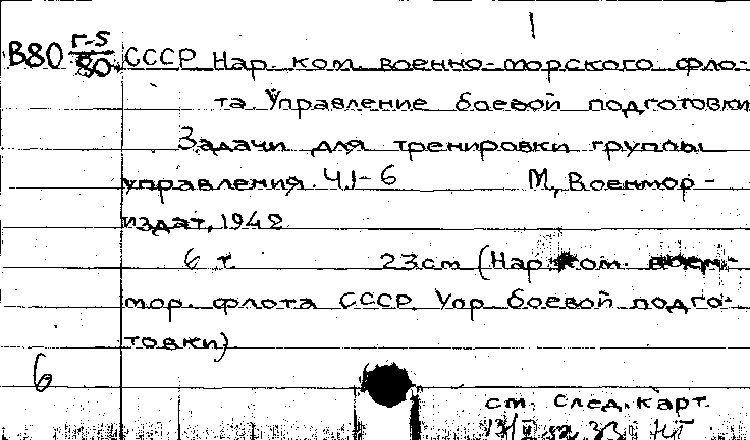 1
В80 Г-5/80 СССР Нар. ком. военно-морского фло-
та Управление боевой подготовки
Задачи для тренировки группы
управления. Ч.1-6 М., Военмор-
издат, 1942
6 т. 23см (Нар. ком. воен.-
мор. флота СССР. Упр боевой подго-
товки)
6
см. след. карт.